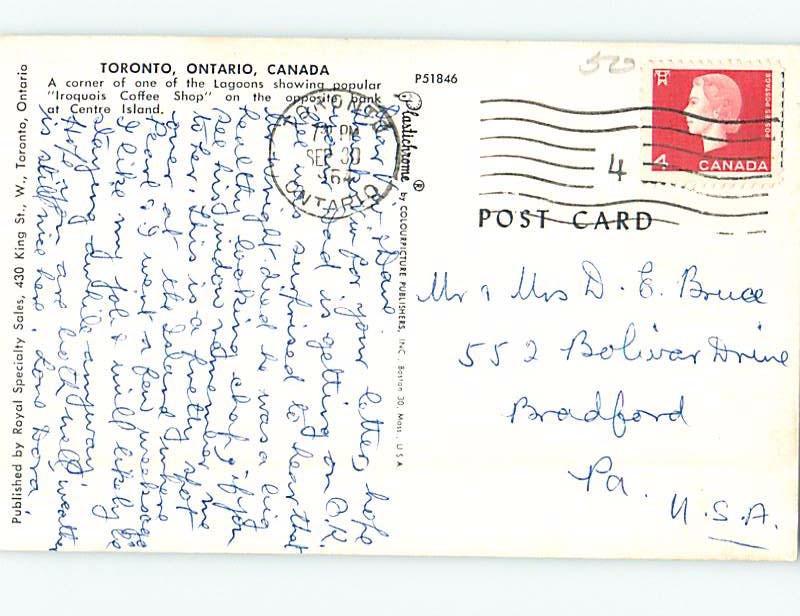 TORONTO, ONTARIO, CANADA
A corner of one of the Lagoons showing popular
"Iroquois Coffee Shop" on the opposite bank
at Centre Island.
P51846
50
POSTES POSTAGE
4
CANADA
TORONTO
PM
SEP 30
ONTARIO
4
POST CARD
Plastichrome ® by COLOURPICTURE PUBLISHERS, INC. Boston 30, Mass., U.S.A.
Published by Royal Specialty Sales, 430 King St., W., Toronto, Ontario
Dear
for your letter, hope
Dad is getting on O.K.
was surprised to hear that
Al Wright died he was a big
healthy looking chap, if you
see his window remember me
to her. This is a pretty spot
over at the Island where
Pearl & I went a few weeks ago
I like my job & will likely be
staying awhile anyway.
Hope you are both well, weather
is still nice here. Love Dora
Mr & Mrs D. E. Bruce
552 Bolivar Drive
Bradford
Pa.
U.S.A.